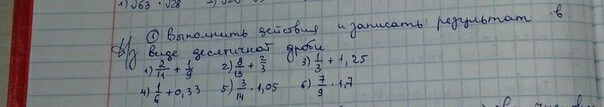 1) √63 · √28 2)
① Выполнить действия и записать результат в
виде десятичной дроби
1) 2/11 + 1/9 2) 8/13 + 2/3 3) 1/3 + 1,25
4) 1/6 + 0,33 5) 3/14 · 1,05 6) 7/9 · 1,7